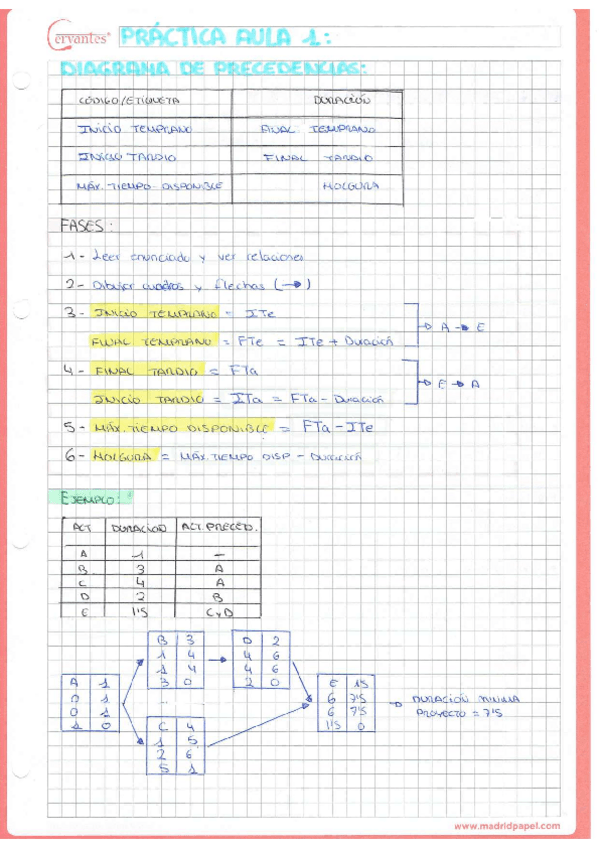 Cervantes® PRÁCTICA AULA 1:
DIAGRAMA DE PRECEDENCIAS:
CÓDIGO/ETIQUETA DURACIÓN
INICIO TEMPRANO FINAL TEMPRANO
INICIO TARDIO FINAL TARDIO
MÁX. TIEMPO DISPONIBLE HOLGURA
FASES:
1- Leer enunciado y ver relaciones
2- Dibujar cuadros y flechas (→)
3- INICIO TEMPRANO = ITe
FINAL TEMPRANO = FTe = ITe + Duración
→ A → E
4- FINAL TARDIO = FTa
INICIO TARDIO = ITa = FTa - Duración
→ E → A
5- MÁX. TIEMPO DISPONIBLE = FTa - ITe
6- HOLGURA = MÁX. TIEMPO DISP - Duración
EJEMPLO:
ACT DURACIÓN ACT. PRECED.
A 1 —
B 3 A
C 4 A
D 2 B
E 1'5 C y D
B 3
1 4
1 4
3 0
D 2
4 6
4 6
2 0
A 1
0 1
0 1
1 0
E 1'5
6 7'5
6 7'5
1'5 0
→ DURACIÓN MÍNIMA
PROYECTO = 7'5
C 4
1 5
2 6
5 1
www.madridpapel.com